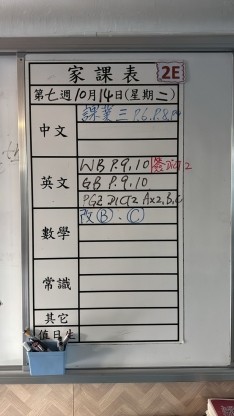 家課表 2E
第七週10月14日(星期二)
中文 課業三 P.6, P.8,
英文
WB P.9,10 簽Dict 2
GB P.9,10
PG2 Dict2 Ax2, B,
數學 改Ⓑ、Ⓒ
常識
其它
值日生